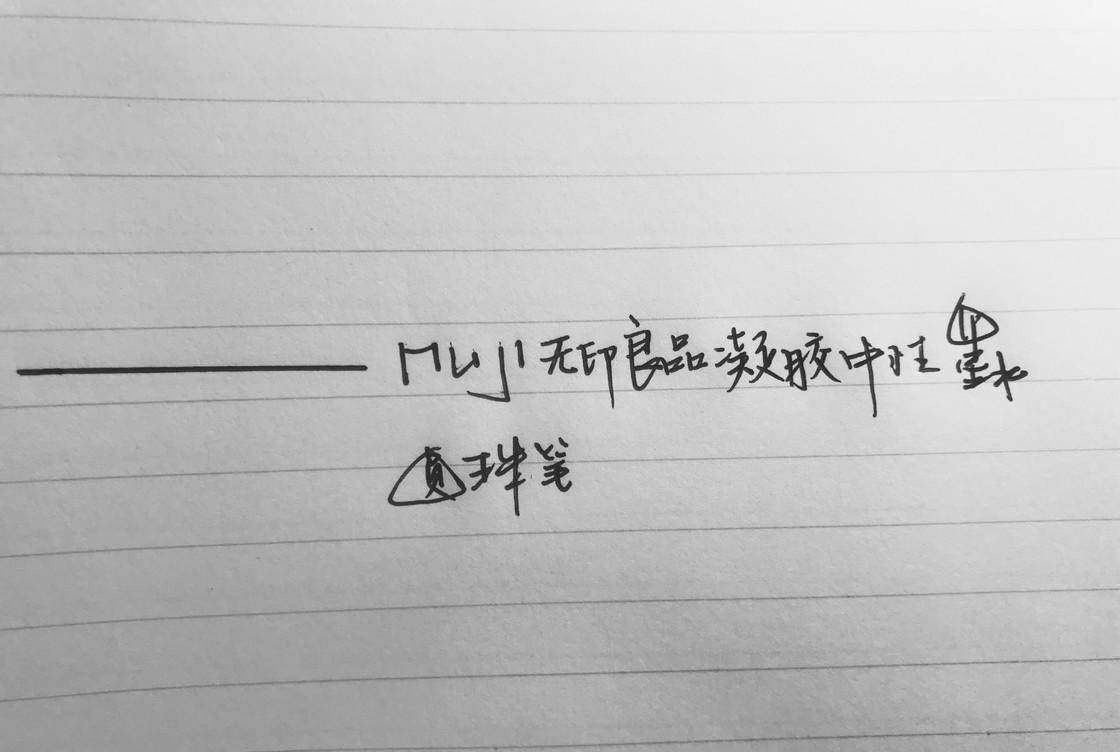 MUJI无印良品凝胶中性墨水
圆珠笔